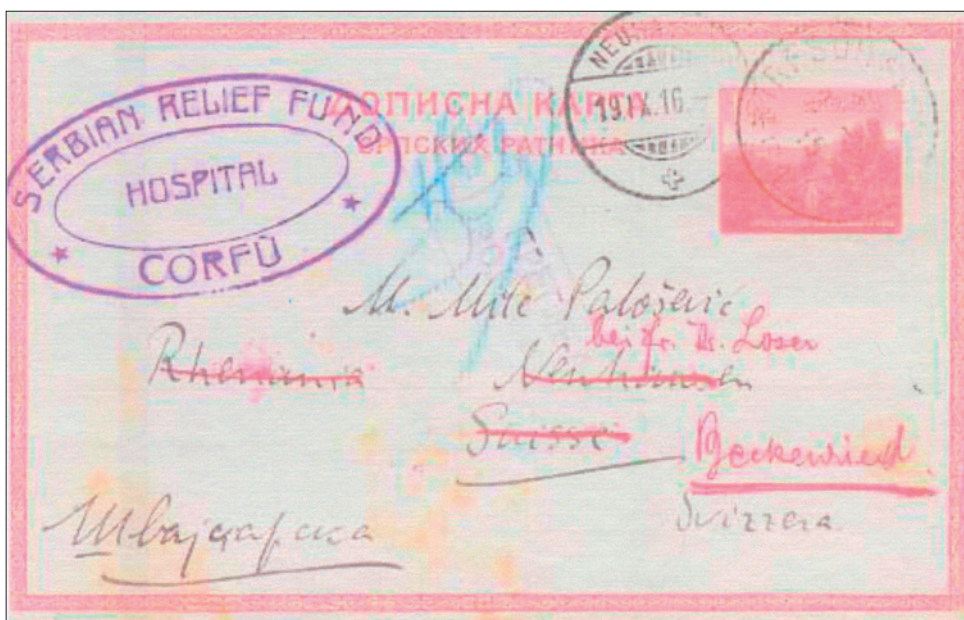 SERBIAN RELIEF FUND
HOSPITAL
CORFU
ДОПИСНА КАРТА
СРПСКИХ РАТНИКА
19.IX.16
M. Mile Palošević
bei fr. Dr. Loser
Rhenania Neuhausen
Suisse
Beckenried
Svizzera
Швајцарска